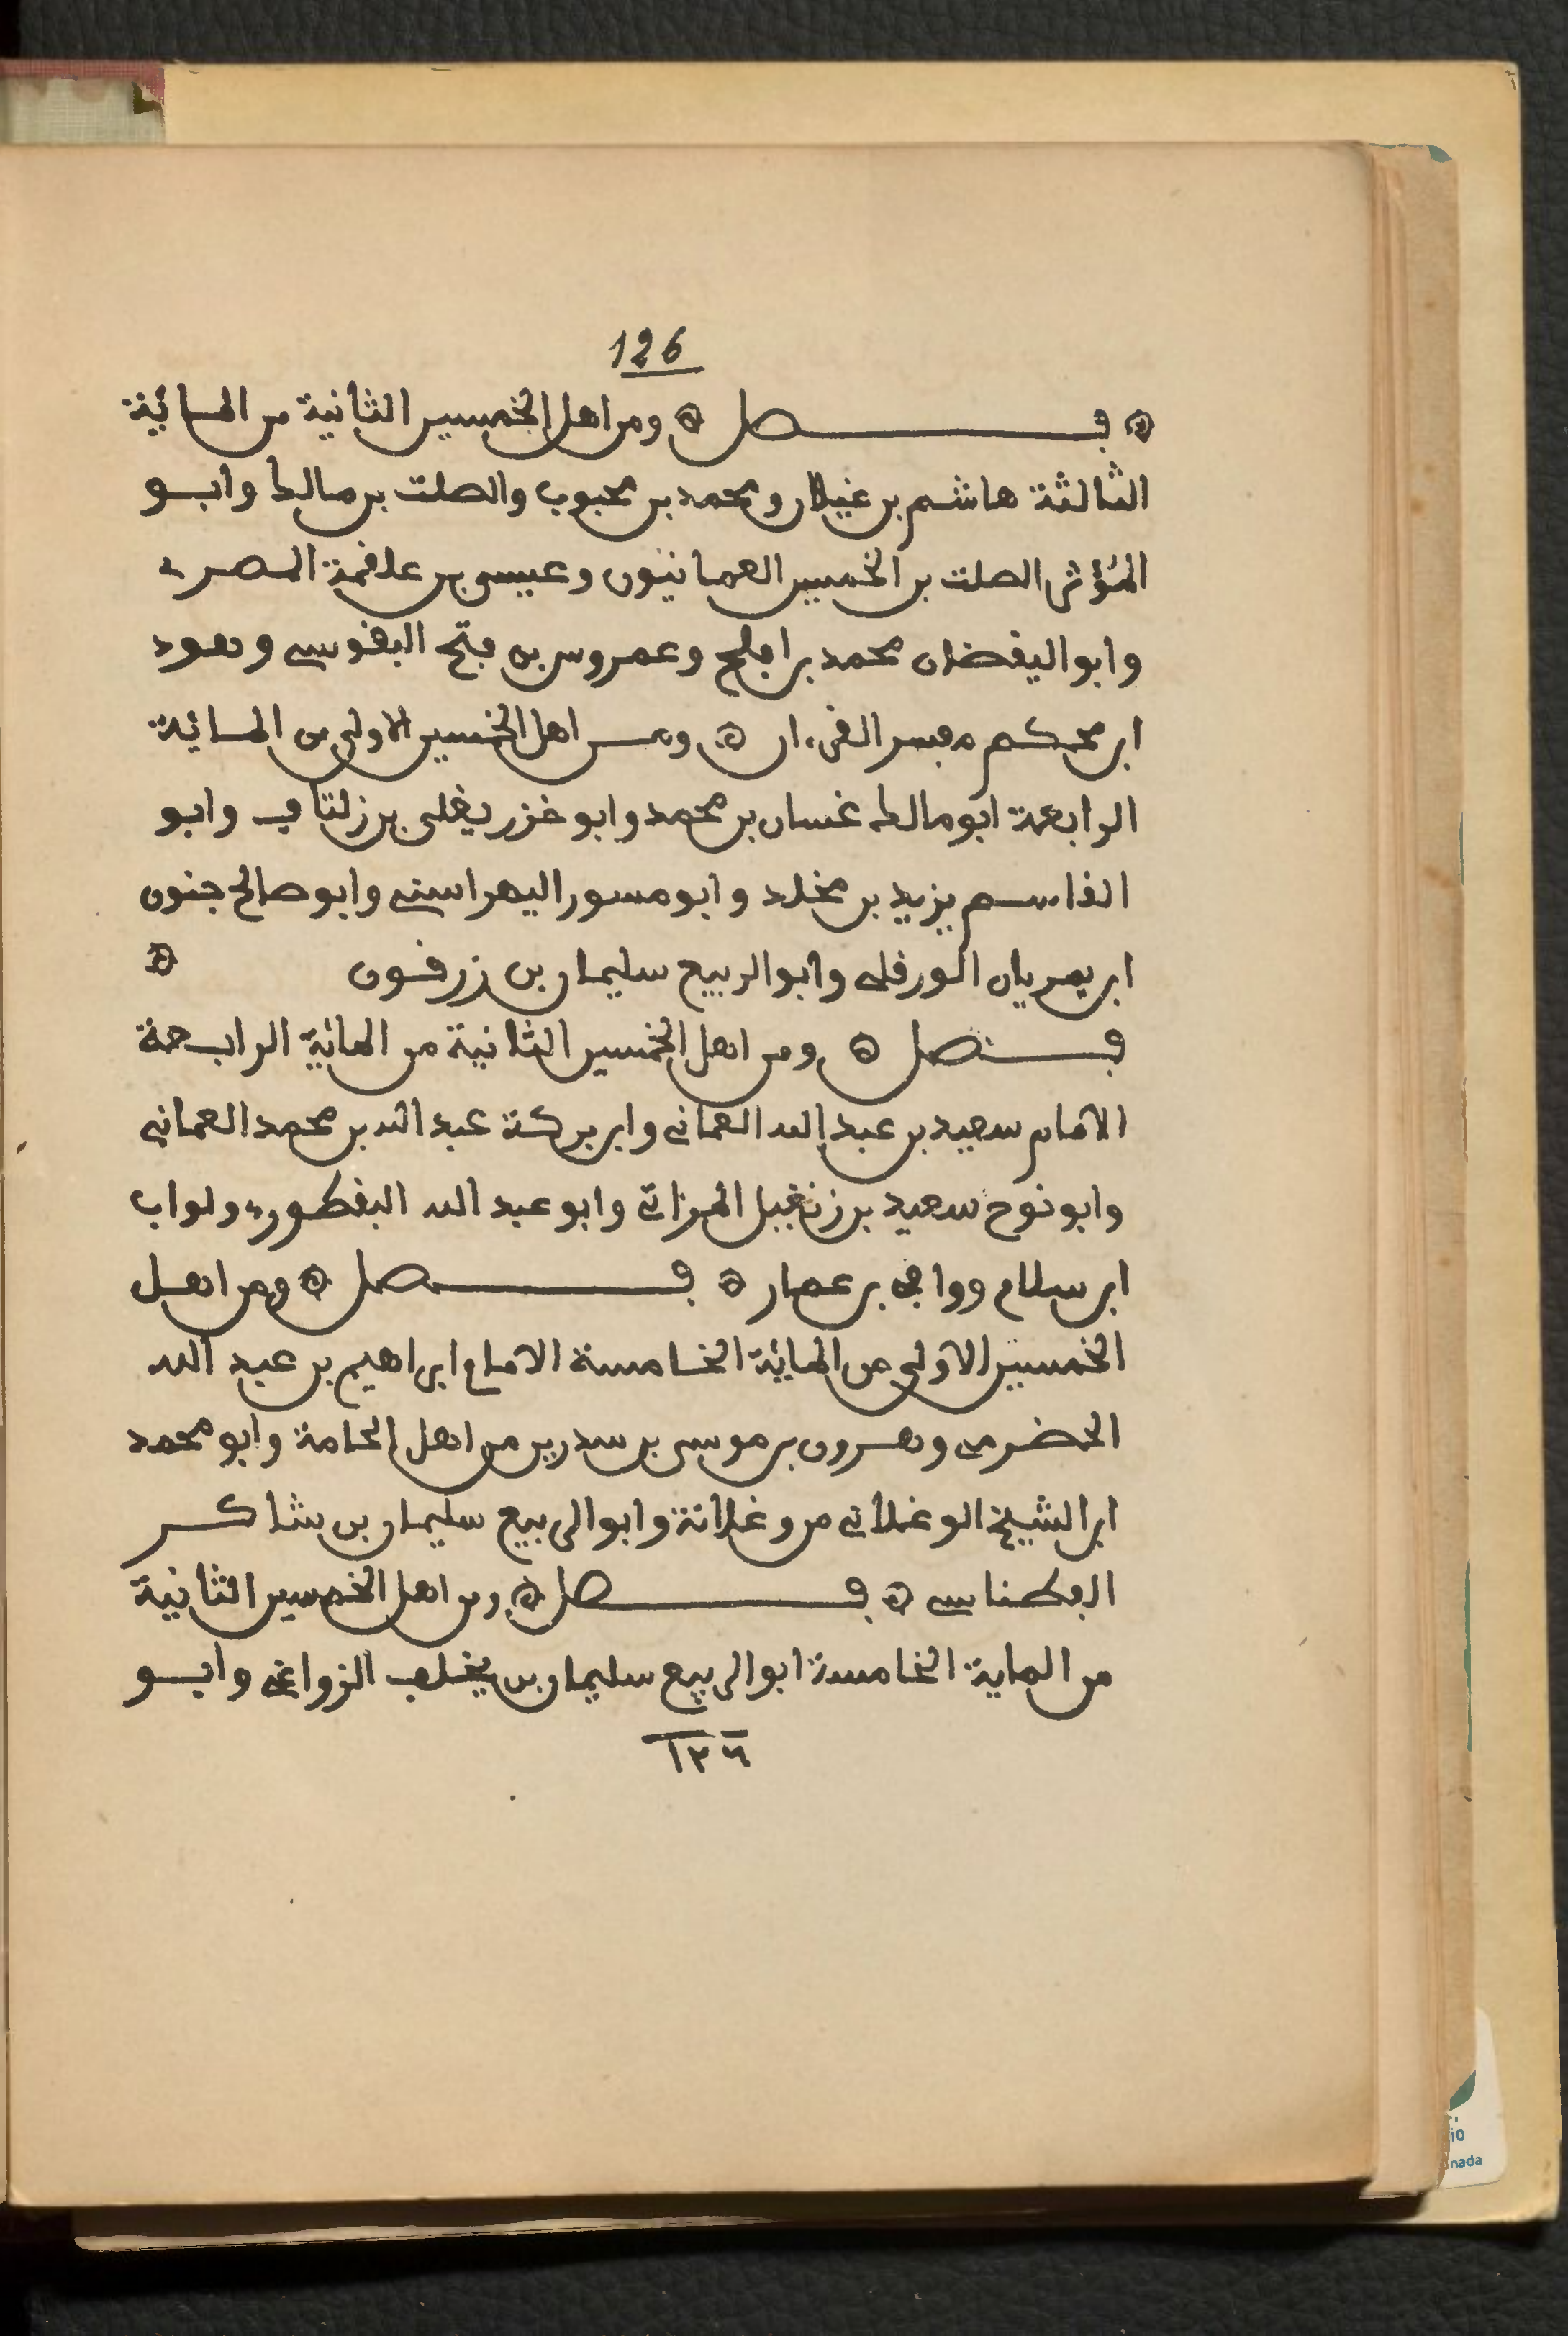 126
فصل ومن اهل الخمسين الثانية من المائية
الثالثة هاشم بن غيلان ومحمد بن محبوب والصلت بن مالك وابو
المؤثر الصلت بن الخمسين العمانيون وعيسى بن علقمة المصرى
وابو اليقضان محمد بن افلح وعمروس بن فتح النفوسي وهود
ابن محكم مفسر القرءان ومن اهل الخمسين الاولى من المائية
الرابعة ابو مالك غسان بن محمد وابو خزر يغلى بن زلتاف وابو
القاسم يزيد بن مخلد وابو مسور اليهراسني وابو صالح جنون
ابن يمريان الورقلى وابو الربيع سليمان بن زرقون
فصل ومن اهل الخمسين الثانية من المائية الرابعة
الامام سعيد بن عبد الله العماني وابن بركة عبد الله بن محمد العماني
وابو نوح سعيد بن زنغيل المزاتي وابو عبد الله النفطورى ولواب
ابن سلام ووافى بن عمار فصل ومن اهل
الخمسين الاولى من المائية الخامسة الامام ابراهيم بن عبد الله
الحضرمى وهرون بن موسى بن سدرين من اهل الحامة وابو محمد
ابن الشيخ الوغلاني من وغلانة وابو الربيع سليمان بن شاكر
الفطناسي فصل ومن اهل الخمسين الثانية
من الماية الخامسة ابو الربيع سليمان بن يخلف الزواغي وابو
١٢٦